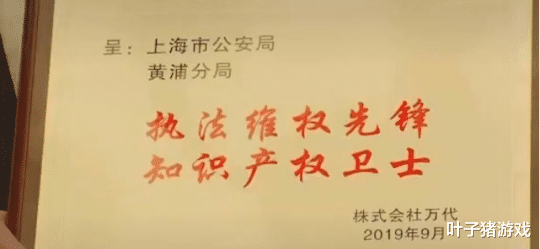 呈：上海市公安局
黄浦分局
执法维权先锋
知识产权卫士
株式会社万代
2019年9月
叶子猪游戏